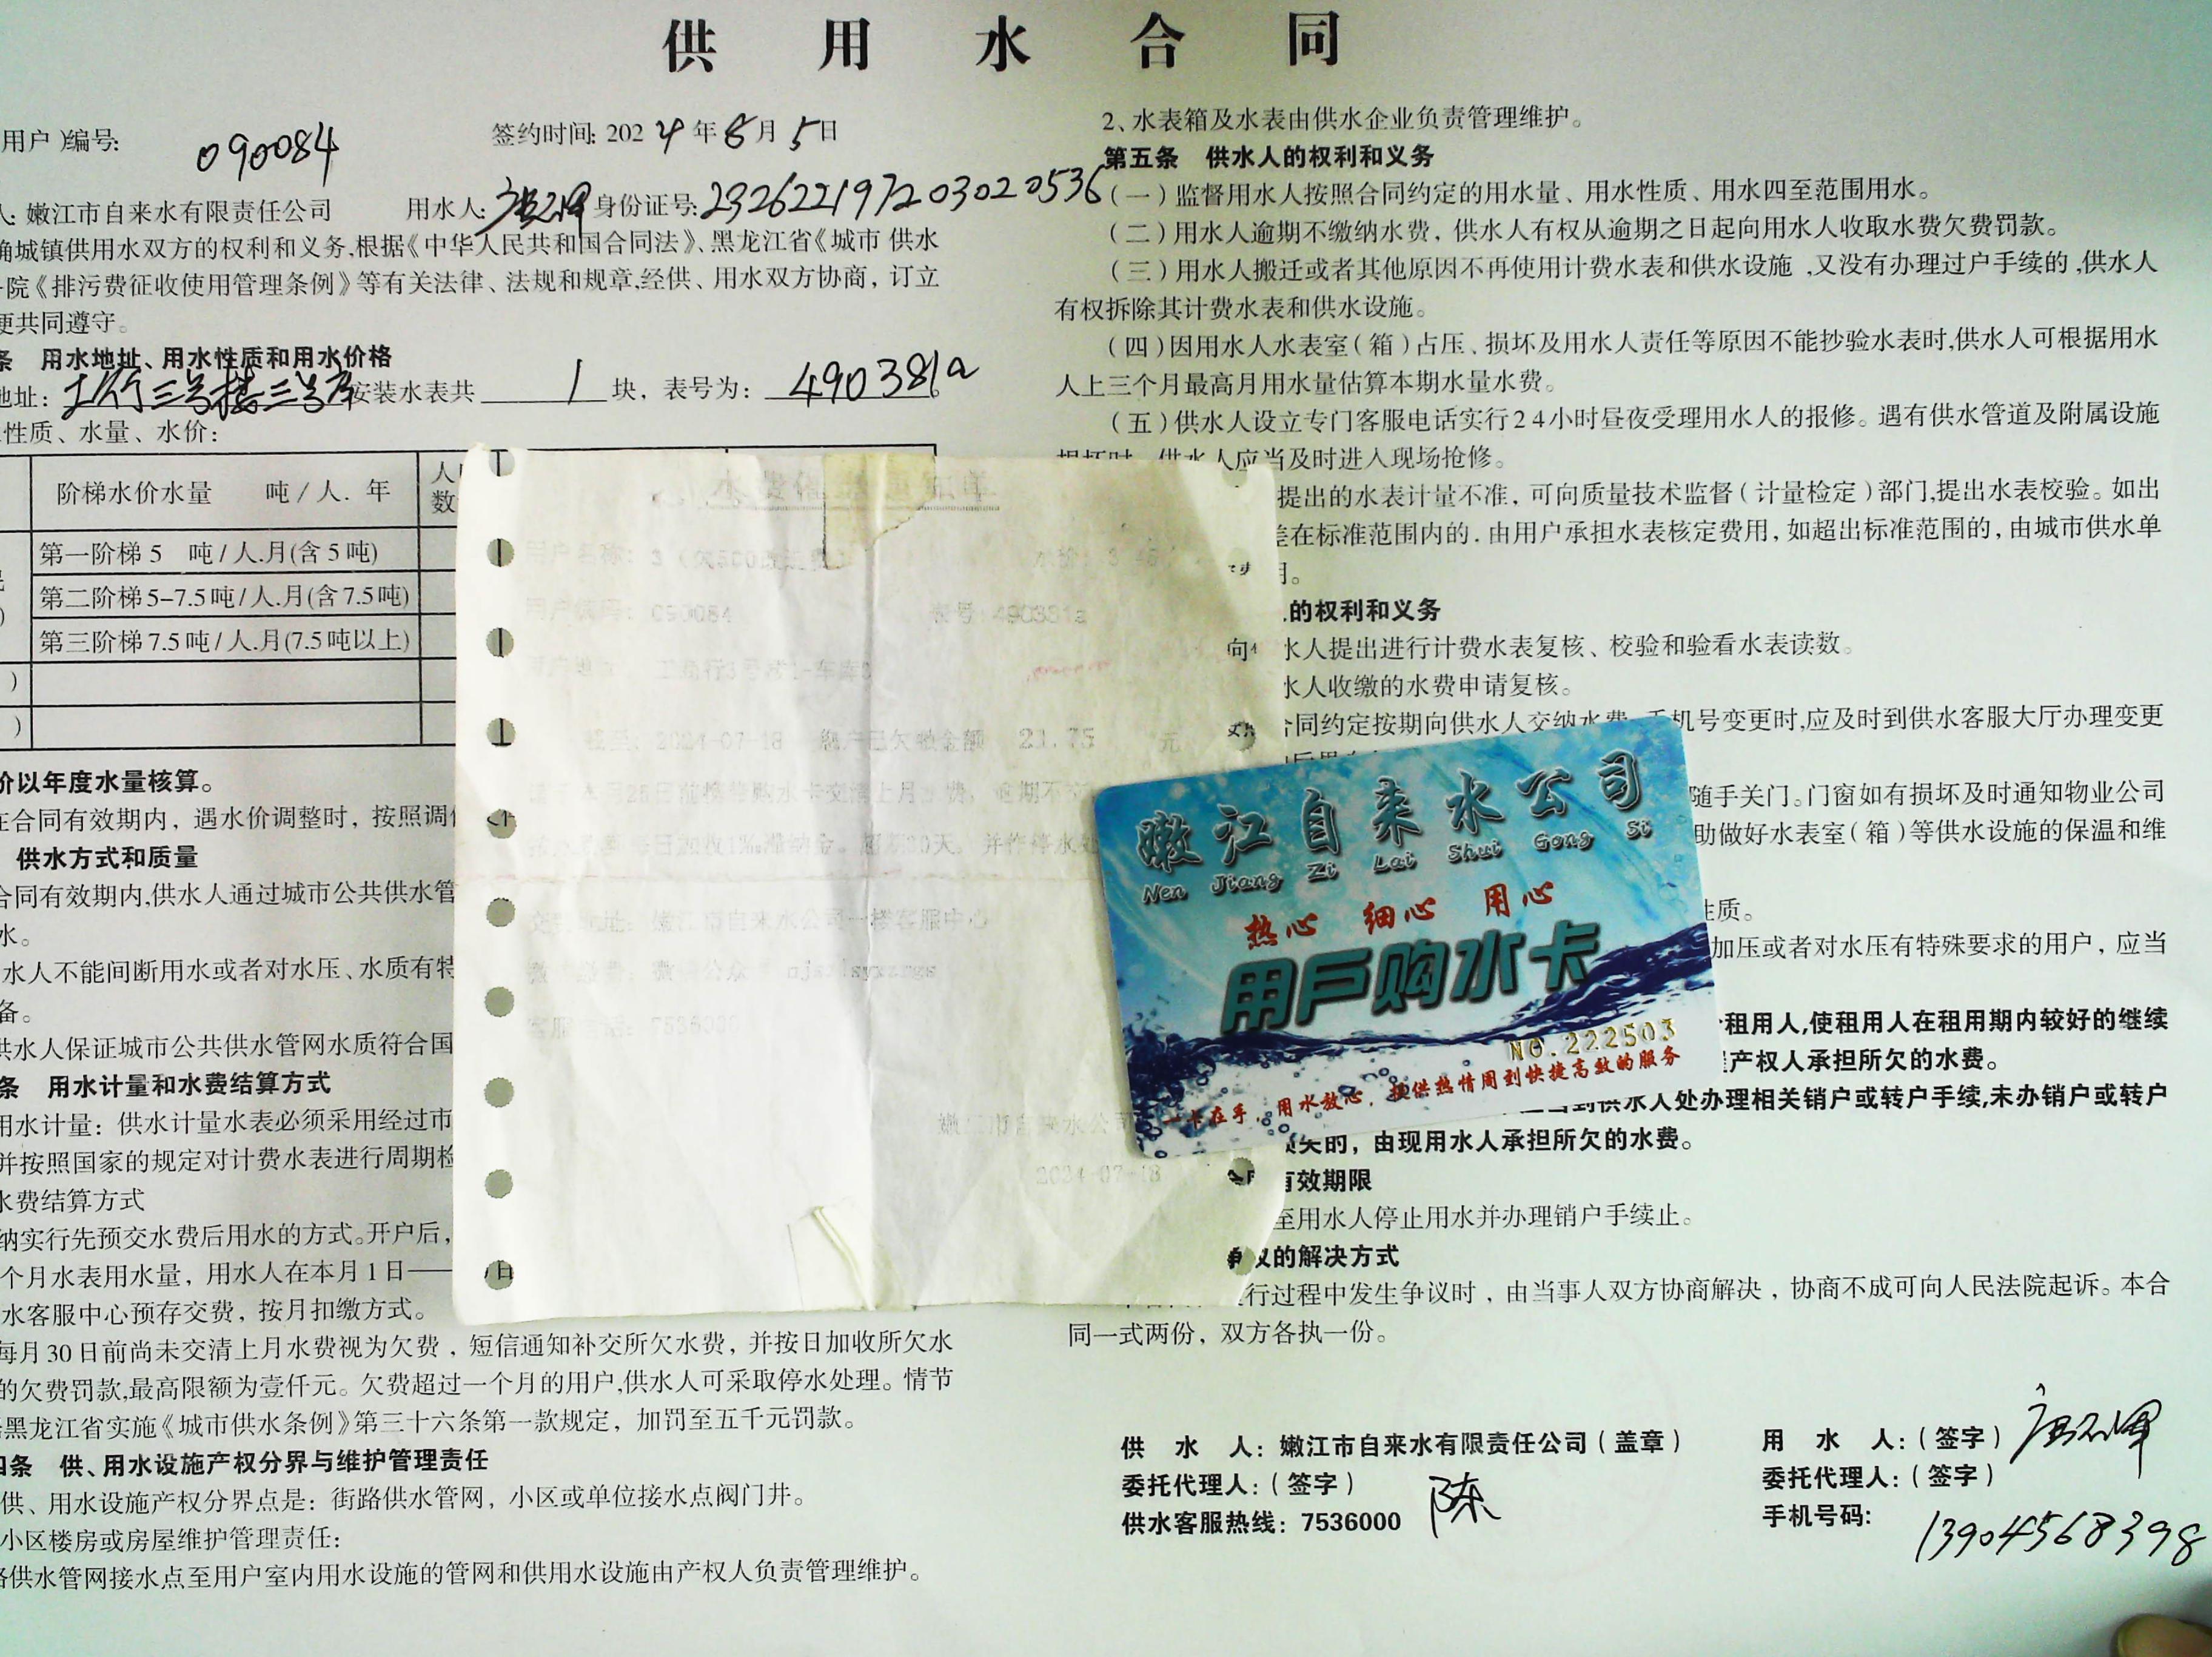 供用水合同
用户)编号: 090084 签约时间: 2024年8月5日
人: 嫩江市自来水有限责任公司 用水人: 身份证号: 232622197203020536
确城镇供用水双方的权利和义务,根据《中华人民共和国合同法》、黑龙江省《城市 供水
院《排污费征收使用管理条例》等有关法律、法规和规章,经供、用水双方协商，订立
更共同遵守。
条 用水地址、用水性质和用水价格
地址: 行三号楼三号库 安装水表共 1 块，表号为: 490381a
性质、水量、水价:
阶梯水价水量 吨/人.年 人 数
第一阶梯5 吨/人.月(含5吨)
第二阶梯5-7.5吨/人.月(含7.5吨)
第三阶梯7.5吨/人.月(7.5吨以上)
价以年度水量核算。
在合同有效期内，遇水价调整时，按照调
供水方式和质量
合同有效期内,供水人通过城市公共供水管
水。
水人不能间断用水或者对水压、水质有特
备。
供水人保证城市公共供水管网水质符合国
条 用水计量和水费结算方式
用水计量: 供水计量水表必须采用经过市
并按照国家的规定对计费水表进行周期检
水费结算方式
纳实行先预交水费后用水的方式。开户后,
个月水表用水量，用水人在本月1日—— 日
水客服中心预存交费，按月扣缴方式。
每月30日前尚未交清上月水费视为欠费，短信通知补交所欠水费，并按日加收所欠水
的欠费罚款,最高限额为壹仟元。欠费超过一个月的用户,供水人可采取停水处理。情节
黑龙江省实施《城市供水条例》第三十六条第一款规定，加罚至五千元罚款。
四条 供、用水设施产权分界与维护管理责任
供、用水设施产权分界点是: 街路供水管网，小区或单位接水点阀门井。
小区楼房或房屋维护管理责任:
路供水管网接水点至用户室内用水设施的管网和供用水设施由产权人负责管理维护。
水费
用户名称: 3 水价: 3.45
用户编码: 090084 表号: 490381a
用户地址: 工商行3号 车库3
截至: 2024-07-18 账户已欠缴金额 21.75 元
月25日前携带购水卡交清上月水费，逾期不
每日加收1%滞纳金。逾期30天，并作停水处
交费地址: 嫩江市自来水公司一楼客服中心
客服电话: 7536000
嫩江市自来水公司
2024-07-18
嫩江自来水公司
Nen Jiang Zi Lai Shui Gong Si
热心 细心 用心
用户购水卡
NO.222503
一卡在手，用水放心，提供热情周到快捷高效的服务
2、水表箱及水表由供水企业负责管理维护。
第五条 供水人的权利和义务
(一)监督用水人按照合同约定的用水量、用水性质、用水四至范围用水。
(二)用水人逾期不缴纳水费，供水人有权从逾期之日起向用水人收取水费欠费罚款。
(三)用水人搬迁或者其他原因不再使用计费水表和供水设施,又没有办理过户手续的,供水人
有权拆除其计费水表和供水设施。
(四)因用水人水表室(箱)占压、损坏及用水人责任等原因不能抄验水表时,供水人可根据用水
人上三个月最高月用水量估算本期水量水费。
(五)供水人设立专门客服电话实行24小时昼夜受理用水人的报修。遇有供水管道及附属设施
损坏时，供水人应当及时进入现场抢修。
提出的水表计量不准，可向质量技术监督(计量检定)部门,提出水表校验。如出
差在标准范围内的.由用户承担水表核定费用，如超出标准范围的，由城市供水单
的权利和义务
水人提出进行计费水表复核、校验和验看水表读数。
水人收缴的水费申请复核。
合同约定按期向供水人交纳水费 手机号变更时,应及时到供水客服大厅办理变更
随手关门。门窗如有损坏及时通知物业公司
助做好水表室(箱)等供水设施的保温和维
性质。
加压或者对水压有特殊要求的用户，应当
租用人,使租用人在租用期内较好的继续
产权人承担所欠的水费。
到供水人处办理相关销户或转户手续,未办销户或转户
损失的，由现用水人承担所欠的水费。
有效期限
至用水人停止用水并办理销户手续止。
争议的解决方式
行过程中发生争议时，由当事人双方协商解决，协商不成可向人民法院起诉。本合
同一式两份，双方各执一份。
供水人: 嫩江市自来水有限责任公司(盖章) 用水人:(签字)
委托代理人:(签字) 陈 委托代理人:(签字)
供水客服热线: 7536000 手机号码: 13904568398